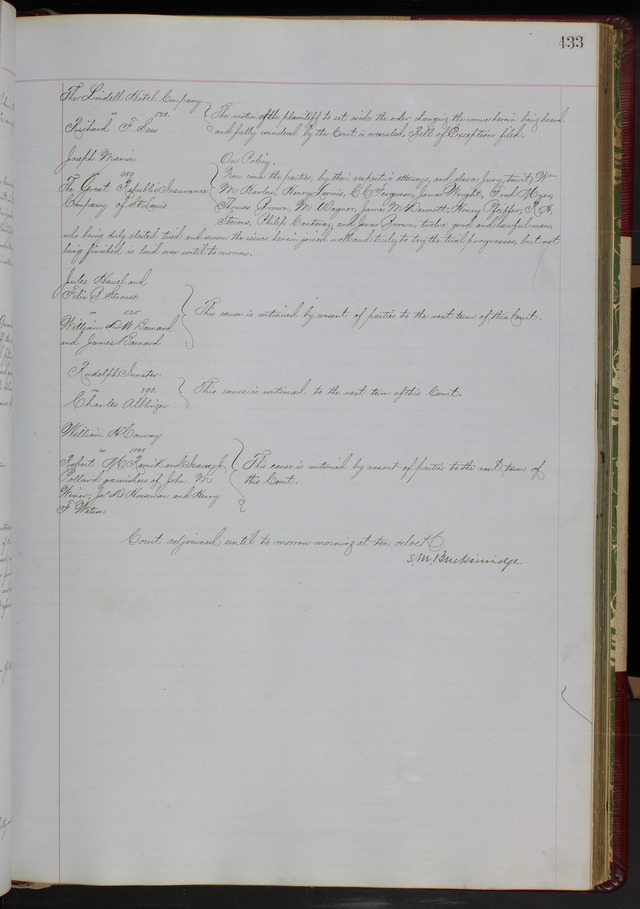 433
The Lindell Hotel Company
" 580.
Richard F. Sass
The motion of the plaintiff to set aside the order changing the venue herein being heard
and fully considered by the Court is overruled, Bill of Exceptions filed.
Joseph Marion
" 489
The Great Republic Insurance
Company of St Louis
On Policy.
Now come the parties, by their respective attorneys, and also a jury, to wit; Wm
M Barlow, Henry Loomis, C C Ferguson, James Wright, Fred Meyer,
Thomas Brown, M Wagner, James M Bennett, Henry Pfeiffer, R H
Stevens, Philip and James Brown, twelve good and lawful men,
who being duly elected tried and sworn the issues herein joined well and truly to try the trial progresses, but not
being finished is laid over until to morrow.
Jules and
Felix J
"
William D W Barnard
and James Barnard
This cause is continued by consent of parties to the next term of this Court.
Rudolph
" 590.
Charles
This cause is continued to the next term of this Court.
William H Conway
"
Robert M and Joseph
Pollard garnishees of John M
Wimer, and Henry
F Watson
This cause is continued by consent of parties to the next term of
this Court.
Court adjourned until to morrow morning at ten oclock
S. M. Breckinridge